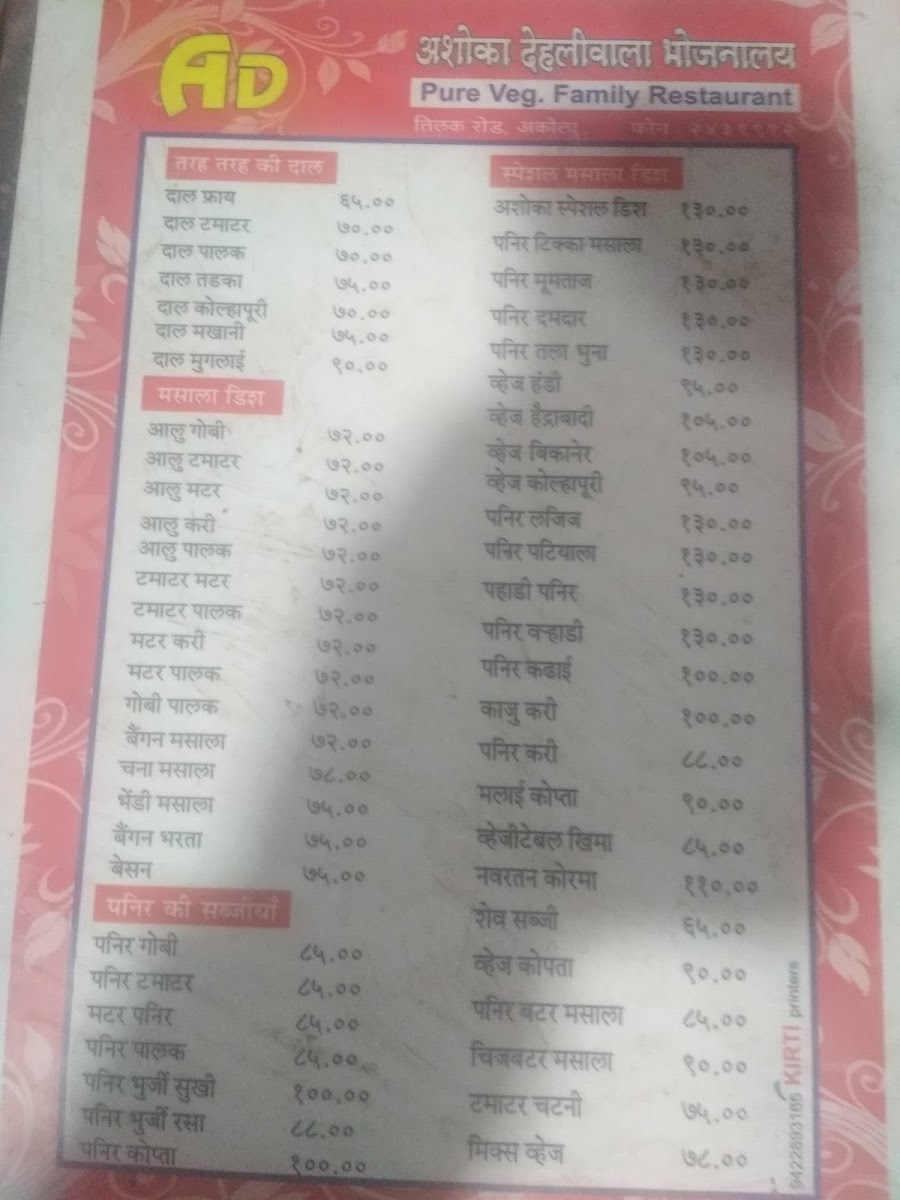 AD
अशोका देहलीवाला भोजनालय
Pure Veg. Family Restaurant
तिलक रोड, अकोला फोन
तरह तरह की दाल
दाल फ्राय ६५.००
दाल टमाटर ७०.००
दाल पालक ७०.००
दाल तडका ७५.००
दाल कोल्हापूरी ७०.००
दाल मखानी ७५.००
दाल मुगलाई ९०.००
मसाला डिश
आलु गोबी ७२.००
आलु टमाटर ७२.००
आलु मटर ७२.००
आलु करी ७२.००
आलु पालक ७२.००
टमाटर मटर ७२.००
टमाटर पालक ७२.००
मटर करी ७२.००
मटर पालक ७२.००
गोबी पालक ७२.००
बैंगन मसाला ७२.००
चना मसाला ७८.००
भेंडी मसाला ७५.००
बैंगन भरता ७५.००
बेसन ७५.००
पनिर की सब्जीयाँ
पनिर गोबी ८५.००
पनिर टमाटर ८५.००
मटर पनिर ८५.००
पनिर पालक ८५.००
पनिर भुर्जी सुखी १००.००
पनिर भुर्जी रसा ८८.००
पनिर कोप्ता १००.००
स्पेशल मसाला डिश
अशोका स्पेशल डिश १३०.००
पनिर टिक्का मसाला १३०.००
पनिर मूमताज १३०.००
पनिर दमदार १३०.००
पनिर तला भुना १३०.००
व्हेज हंडी ९५.००
व्हेज हैद्राबादी १०५.००
व्हेज बिकानेर १०५.००
व्हेज कोल्हापूरी ९५.००
पनिर लजिज १३०.००
पनिर पटियाला १३०.००
पहाडी पनिर १३०.००
पनिर वऱ्हाडी १३०.००
पनिर कढाई १००.००
काजु करी १००.००
पनिर करी ८८.००
मलाई कोप्ता ९०.००
व्हेजीटेबल खिमा ८५.००
नवरतन कोरमा ११०.००
शेव सब्जी ६५.००
व्हेज कोपता ९०.००
पनिर बटर मसाला ८५.००
चिजबटर मसाला ९०.००
टमाटर चटनी ७५.००
मिक्स व्हेज ७८.००
KIRTI printers
9422893165